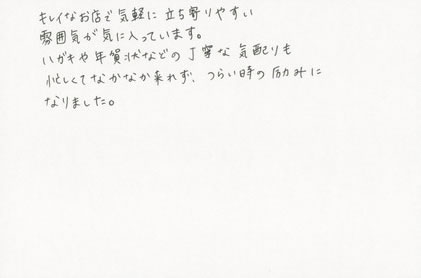 キレイなお店で気軽に立ち寄りやすい
雰囲気が気に入っています。
ハガキや年賀状などの丁寧な気配りも
忙しくてなかなか来れず、つらい時の励みに
なりました。